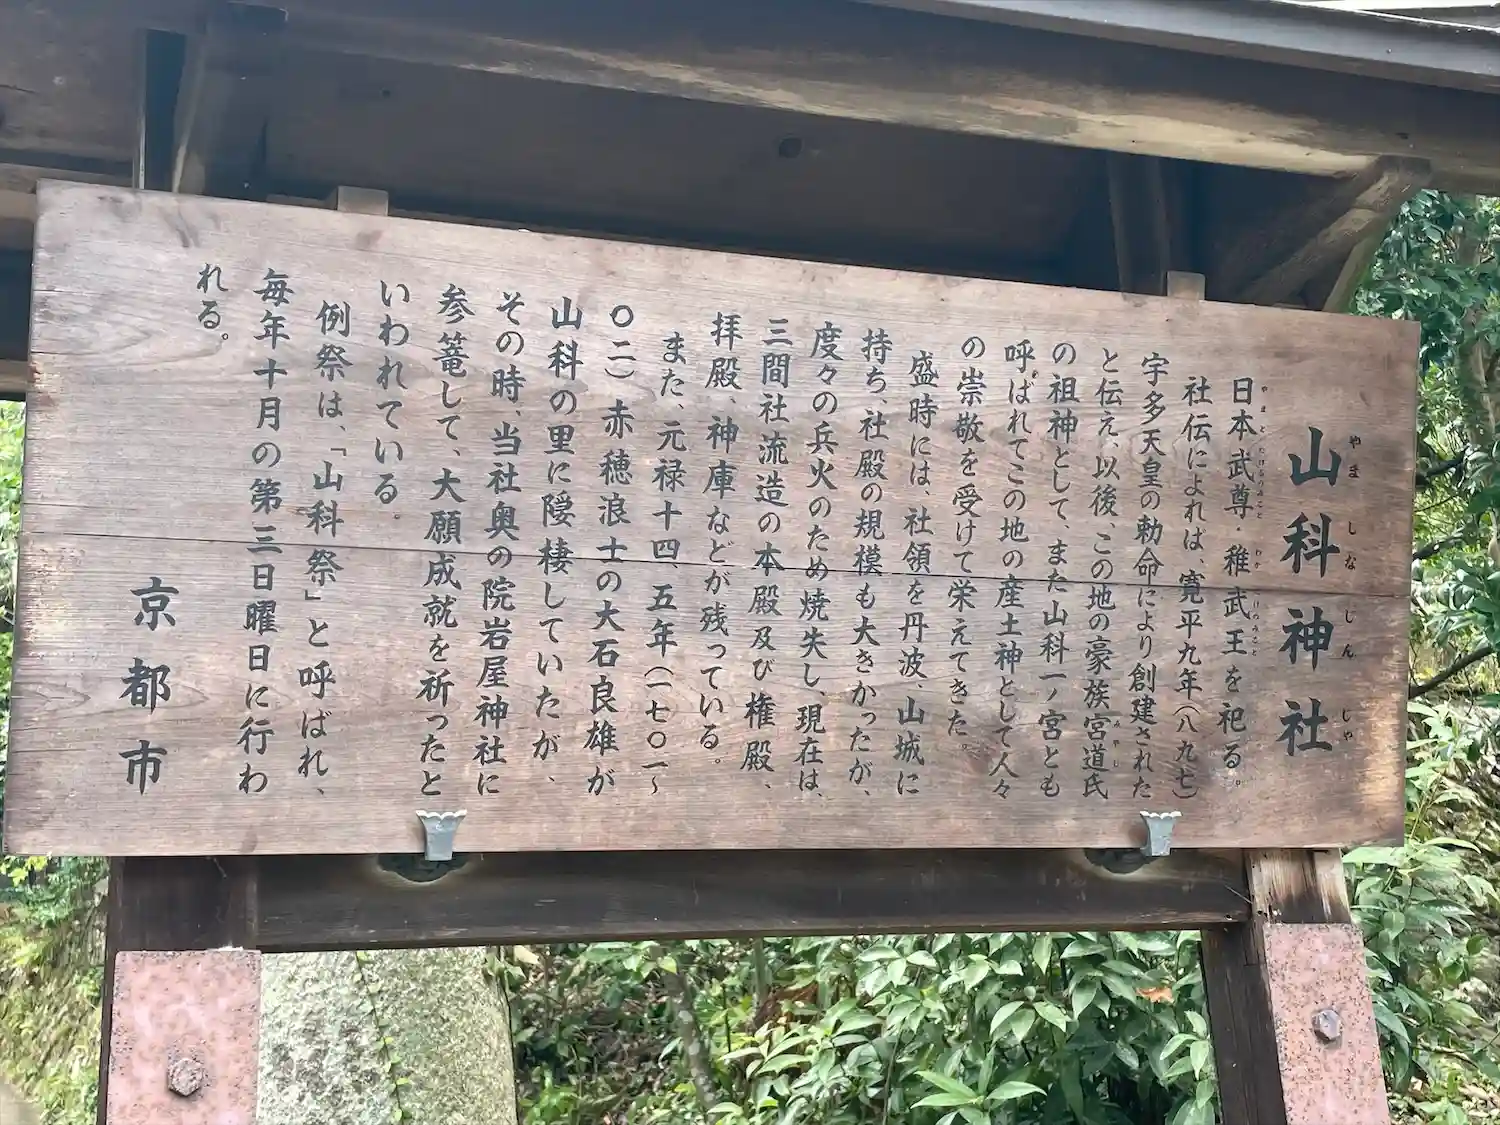 山科神社
やましなじんじゃ
日本武尊・稚武王を祀る。
社伝によれば、寛平九年(八九七)
宇多天皇の勅命により創建された
と伝え、以後、この地の豪族宮道氏
の祖神として、また山科一ノ宮とも
呼ばれてこの地の産土神として人々
の崇敬を受けて栄えてきた。
盛時には、社領を丹波、山城に
持ち、社殿の規模も大きかったが、
度々の兵火のため焼失し、現在は、
三間社流造の本殿及び権殿、
拝殿、神庫などが残っている。
また、元禄十四、五年(一七〇一～
〇二)赤穂浪士の大石良雄が
山科の里に隠棲していたが、
その時、当社奥の院岩屋神社に
参篭して、大願成就を祈ったと
いわれている。
例祭は、「山科祭」と呼ばれ、
毎年十月の第三日曜日に行わ
れる。
京都市